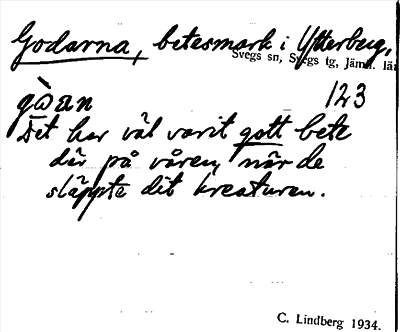 Godarna, betesmark i Ytterberg,
Svegs sn, Svegs tg, Jämtl. lä
gòan 123
Det har väl varit gott bete
där på våren, när de
släppte dit kreaturen.
C. Lindberg 1934.